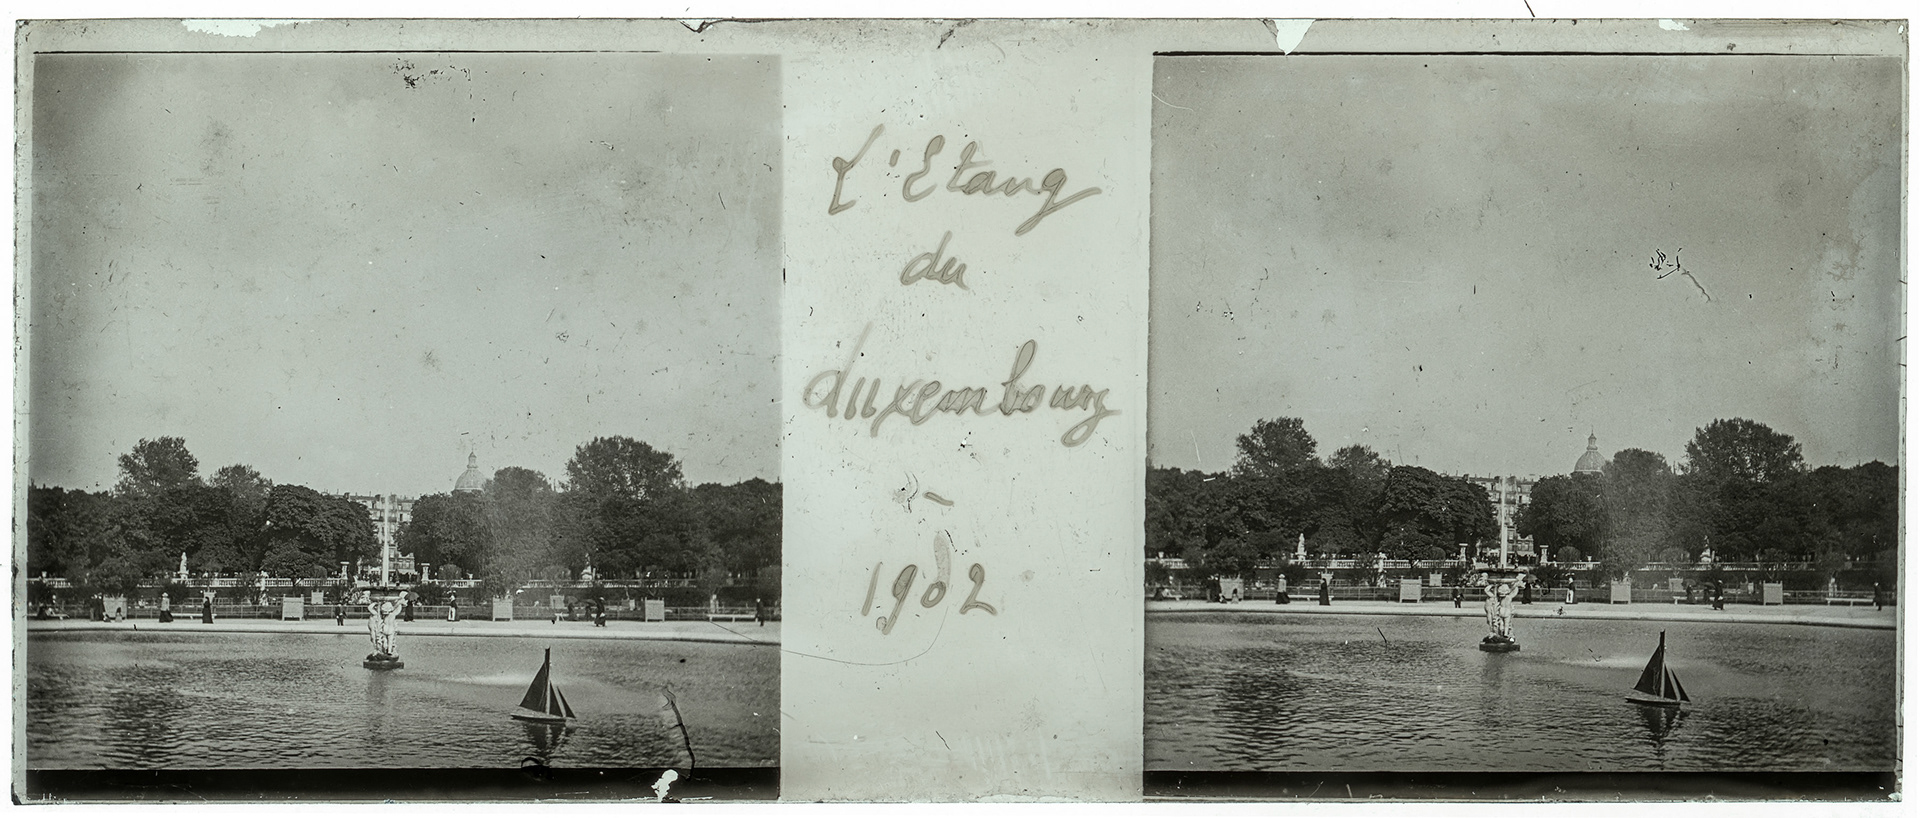 L'Etang
du
Luxembourg
-
1902